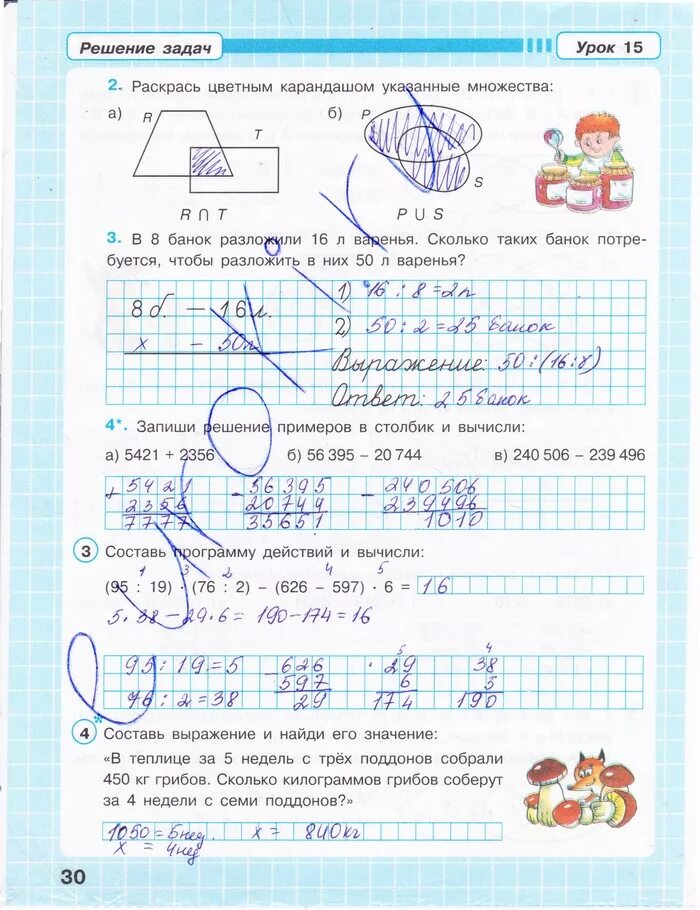 Решение задач
Урок 15
2. Раскрась цветным карандашом указанные множества:
а) R T б) P S
R ∩ T P ∪ S
3. В 8 банок разложили 16 л варенья. Сколько таких банок потре-
буется, чтобы разложить в них 50 л варенья?
8 б. — 16 л.
x — 50 л
1) 16 : 8 = 2л
2) 50 : 2 = 25 банок
Выражение: 50 : (16:8)
Ответ: 25 банок
4*. Запиши решение примеров в столбик и вычисли:
а) 5421 + 2356 б) 56 395 – 20 744 в) 240 506 – 239 496
+ 5421 – 56395 – 240 506
2356 20744 239496
7777 35651 1010
3 Составь программу действий и вычисли:
1 3 2 4 5
(95 : 19) · (76 : 2) – (626 – 597) · 6 = 16
5 · 38 – 29 · 6 = 190 – 174 = 16
5 4
95 : 19 = 5 – 626 · 29 38
597 6 5
76 : 2 = 38 29 174 190
4* Составь выражение и найди его значение:
«В теплице за 5 недель с трёх поддонов собрали
450 кг грибов. Сколько килограммов грибов соберут
за 4 недели с семи поддонов?»
1050 = 5нед. x = 840 кг
x = 4нед
30